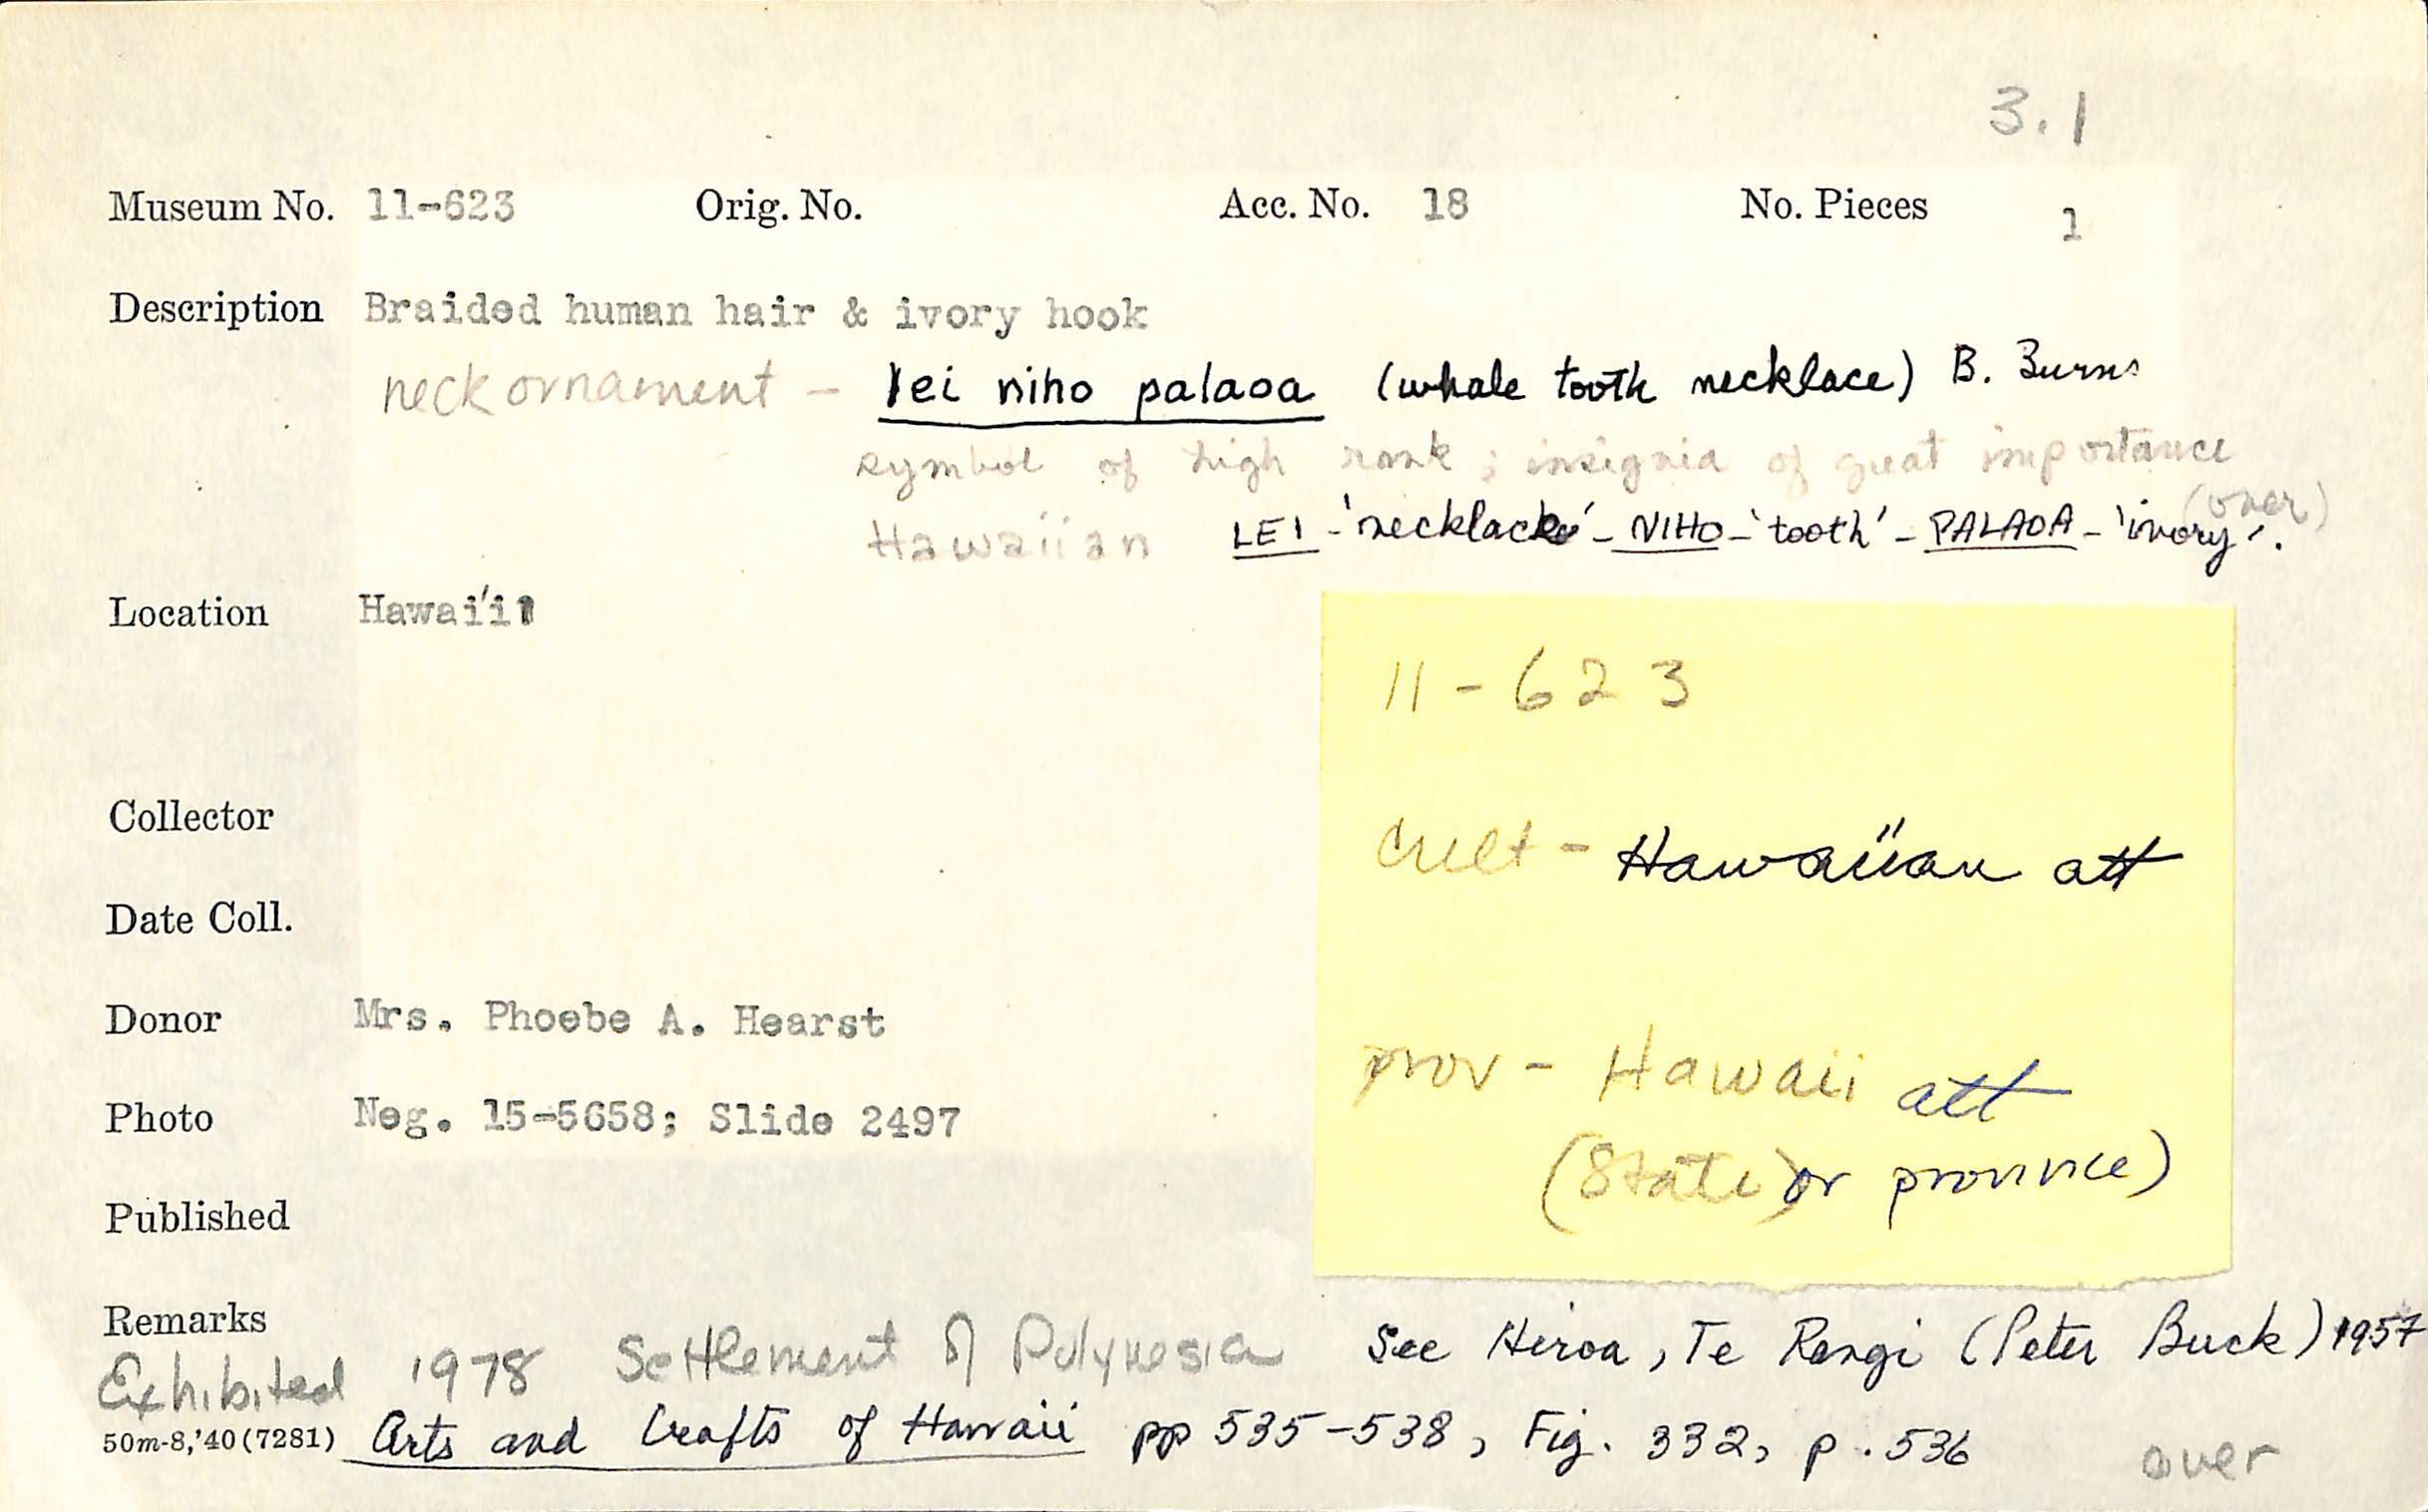 3.1
Museum No. 11-623 Orig. No. Acc. No. 18 No. Pieces 1
Description Braided human hair & ivory hook
neck ornament - lei niho palaoa (whale tooth necklace) B. Burns
symbol of high rank ; insignia of great importance
(over)
Hawaiian LEI - 'necklace' - NIHO - 'tooth' - PALAOA - 'ivory'.
Location Hawai'i
11-623
Collector
cult - Hawaiian att
Date Coll.
Donor Mrs. Phoebe A. Hearst
prov - Hawaii att
Photo Neg. 15-5658; Slide 2497
(State) or province)
Published
Remarks
Exhibited 1978 Settlement of Polynesia See Hiroa, Te Rangi (Peter Buck) 1957
50m-8,'40(7281) Arts and Crafts of Hawaii pp 535-538, Fig. 332, p. 536
over